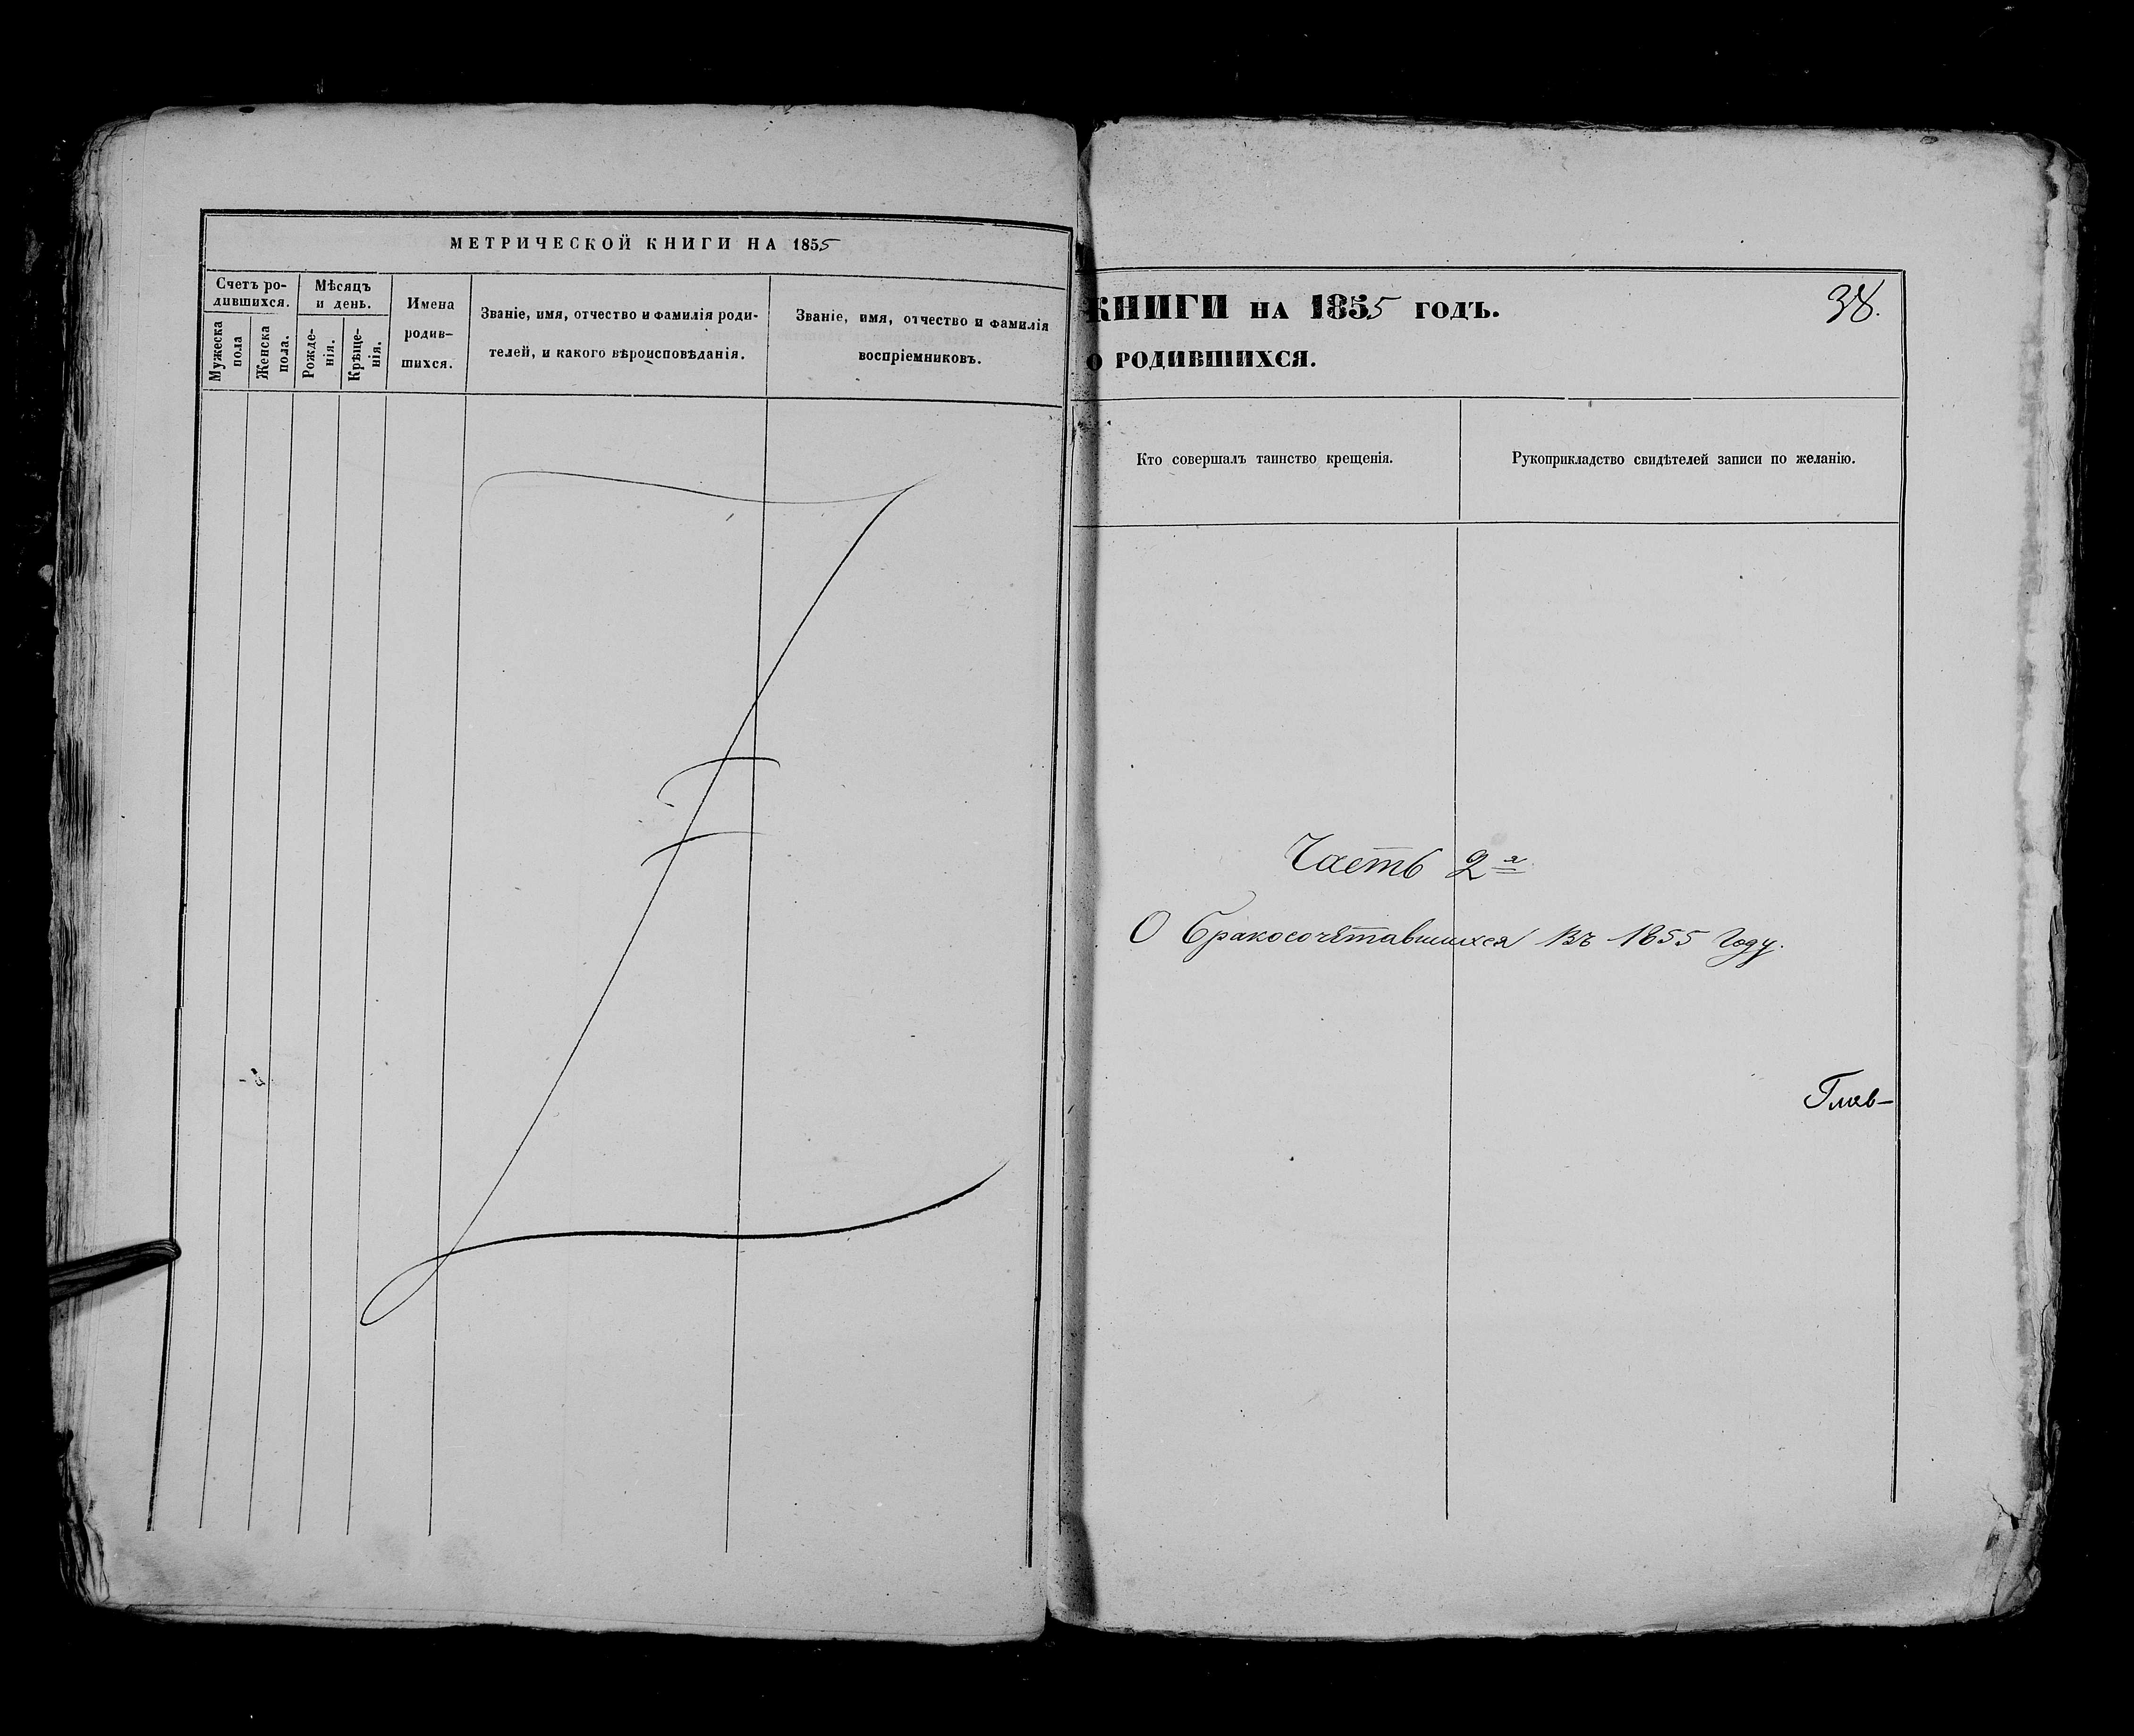 МЕТРИЧЕСКОЙ КНИГИ НА 1855
Счетъ ро-
дившихся.
Мужеска
пола
Женска
пола.
Мѣсяцъ
и день.
Рожде-
нія.
Крѣще-
нія.
Имена
родив-
шихся.
Званіе, имя, отчество и фамилія роди-
телей, и какого вѣроисповѣданія.
Званіе, имя, отчество и фамилія
воспріемниковъ.
КНИГИ НА 1855 ГОДЪ.
38.
О РОДИВШИХСЯ.
Кто совершалъ таинство крещенія.
Рукоприкладство свидѣтелей записи по желанію.
Часть 2я
О бракосочетавшихся въ 1855 году.
Глав-